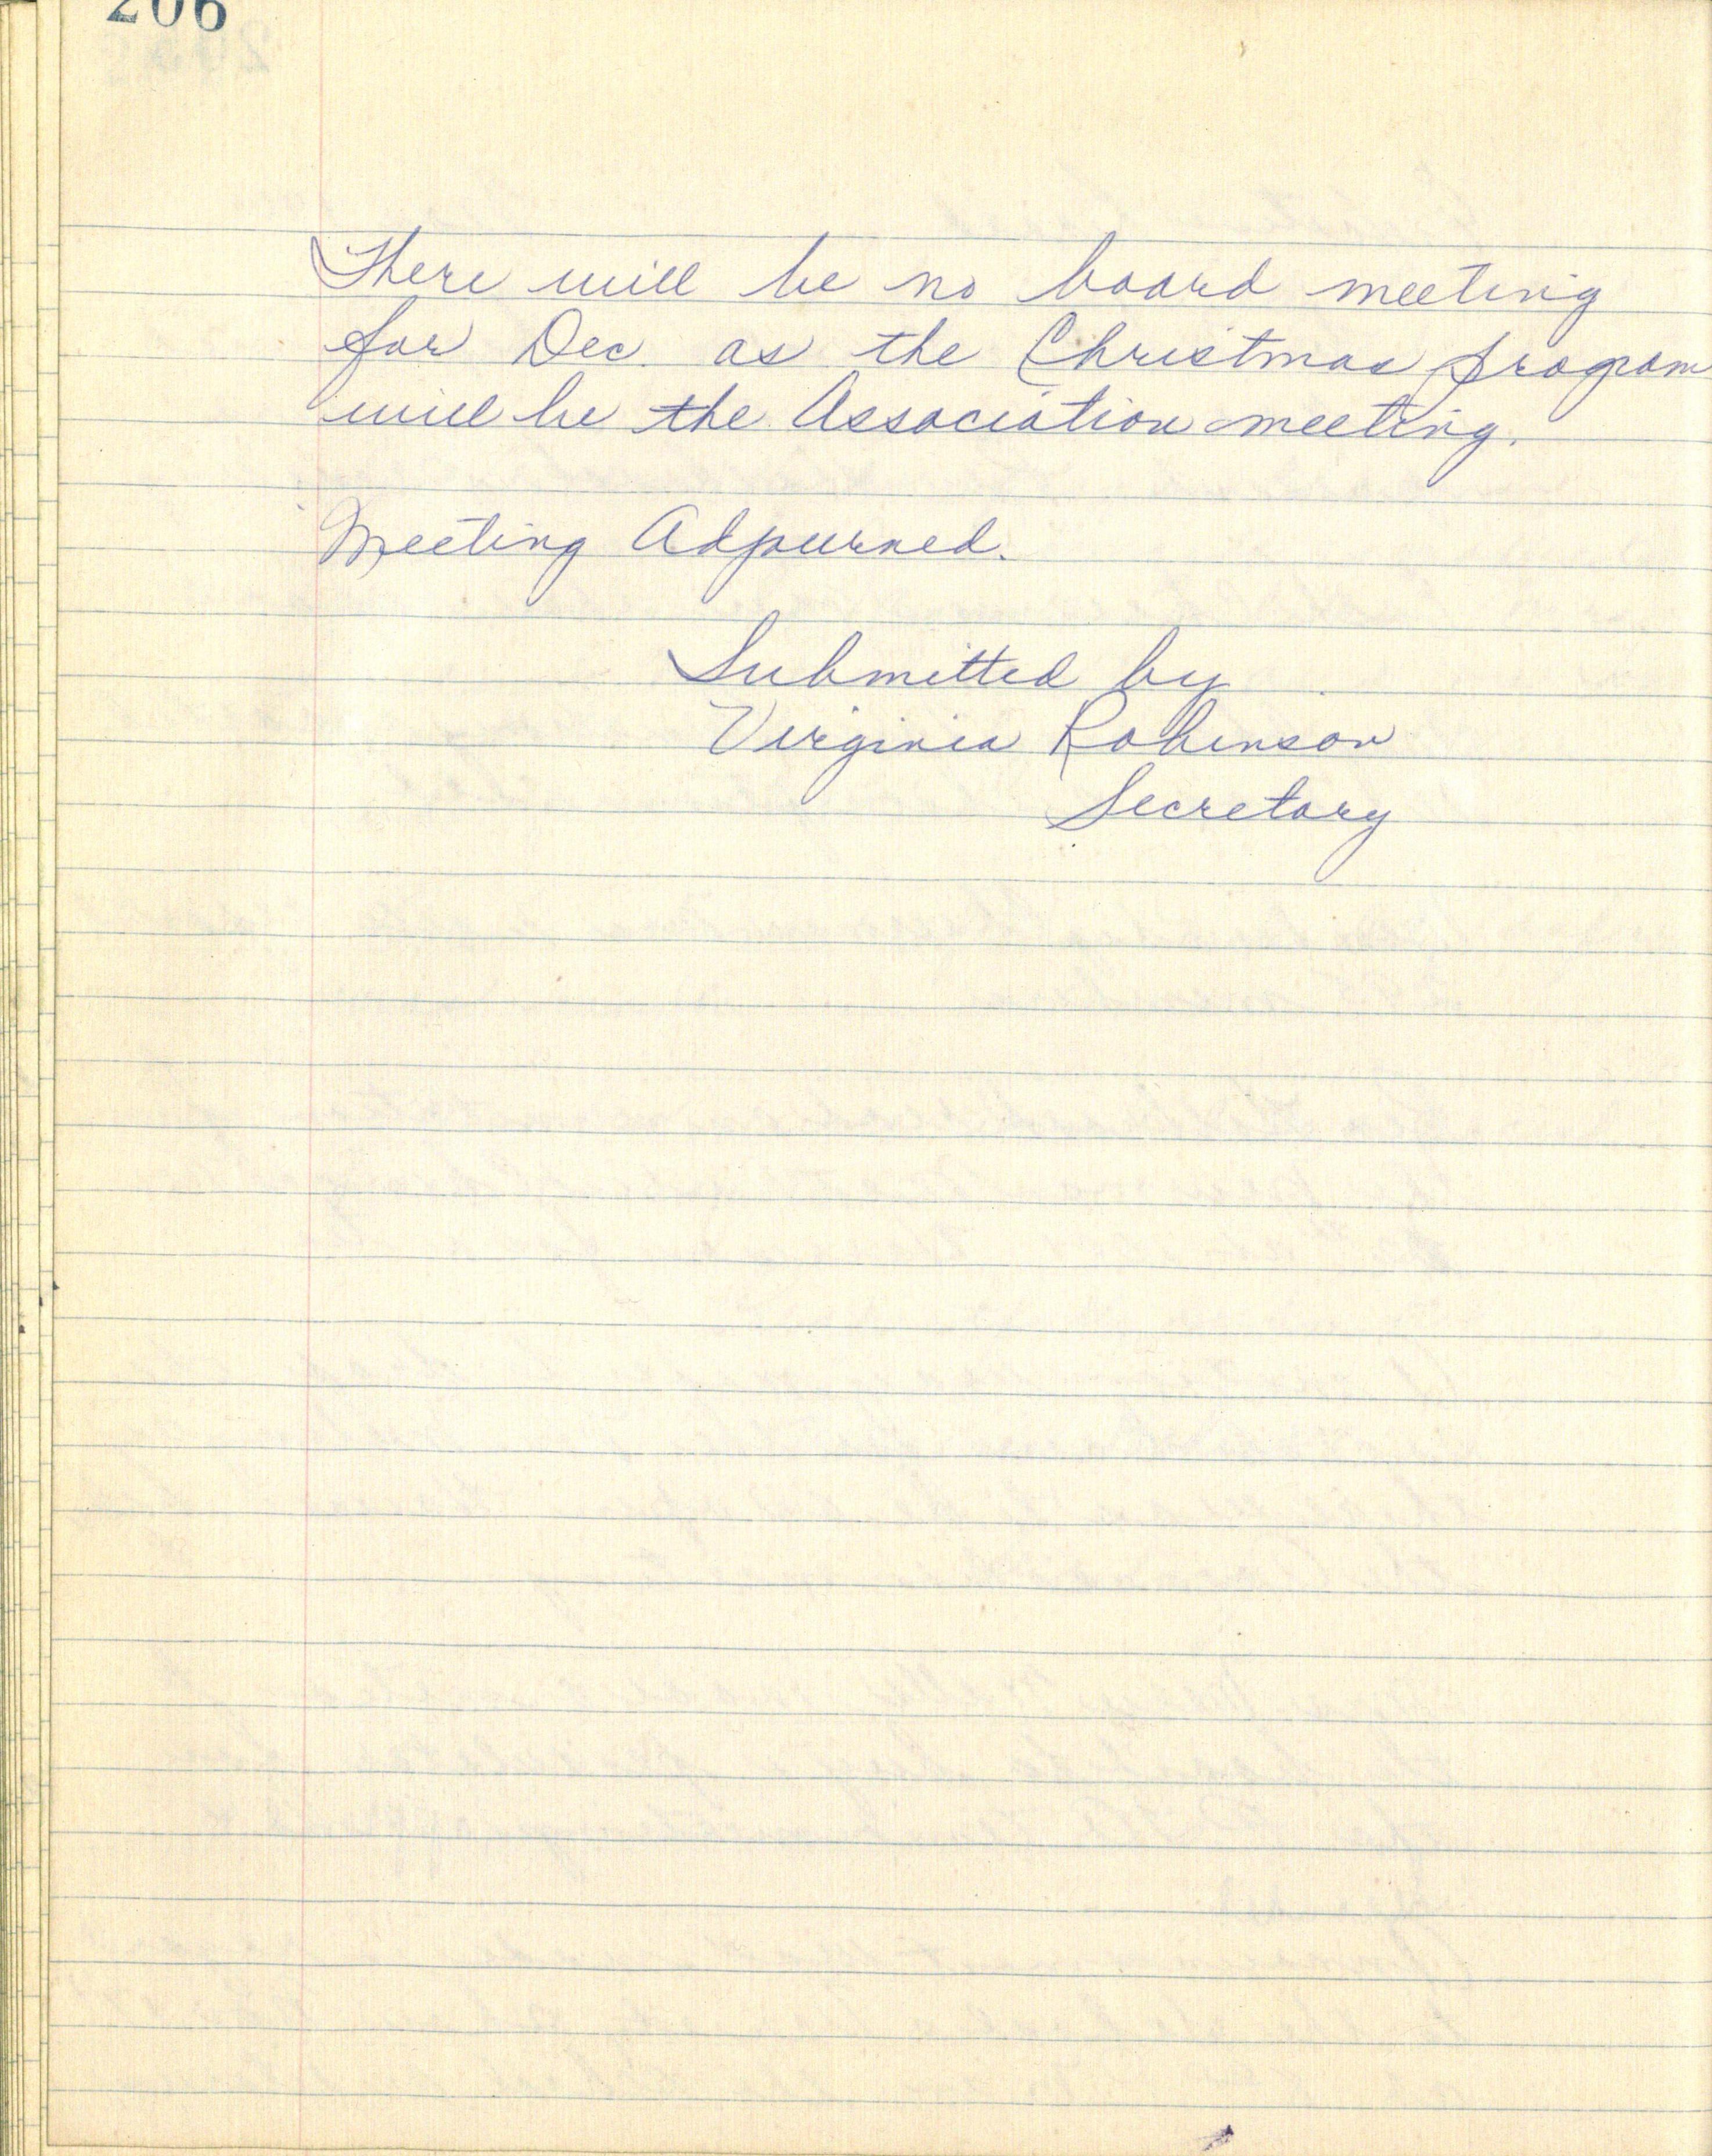 206
There will be no board meeting
for Dec. as the Christmas program
will be the Association meeting.
Meeting Adjourned.
Submitted by
Virginia Robinson
Secretary